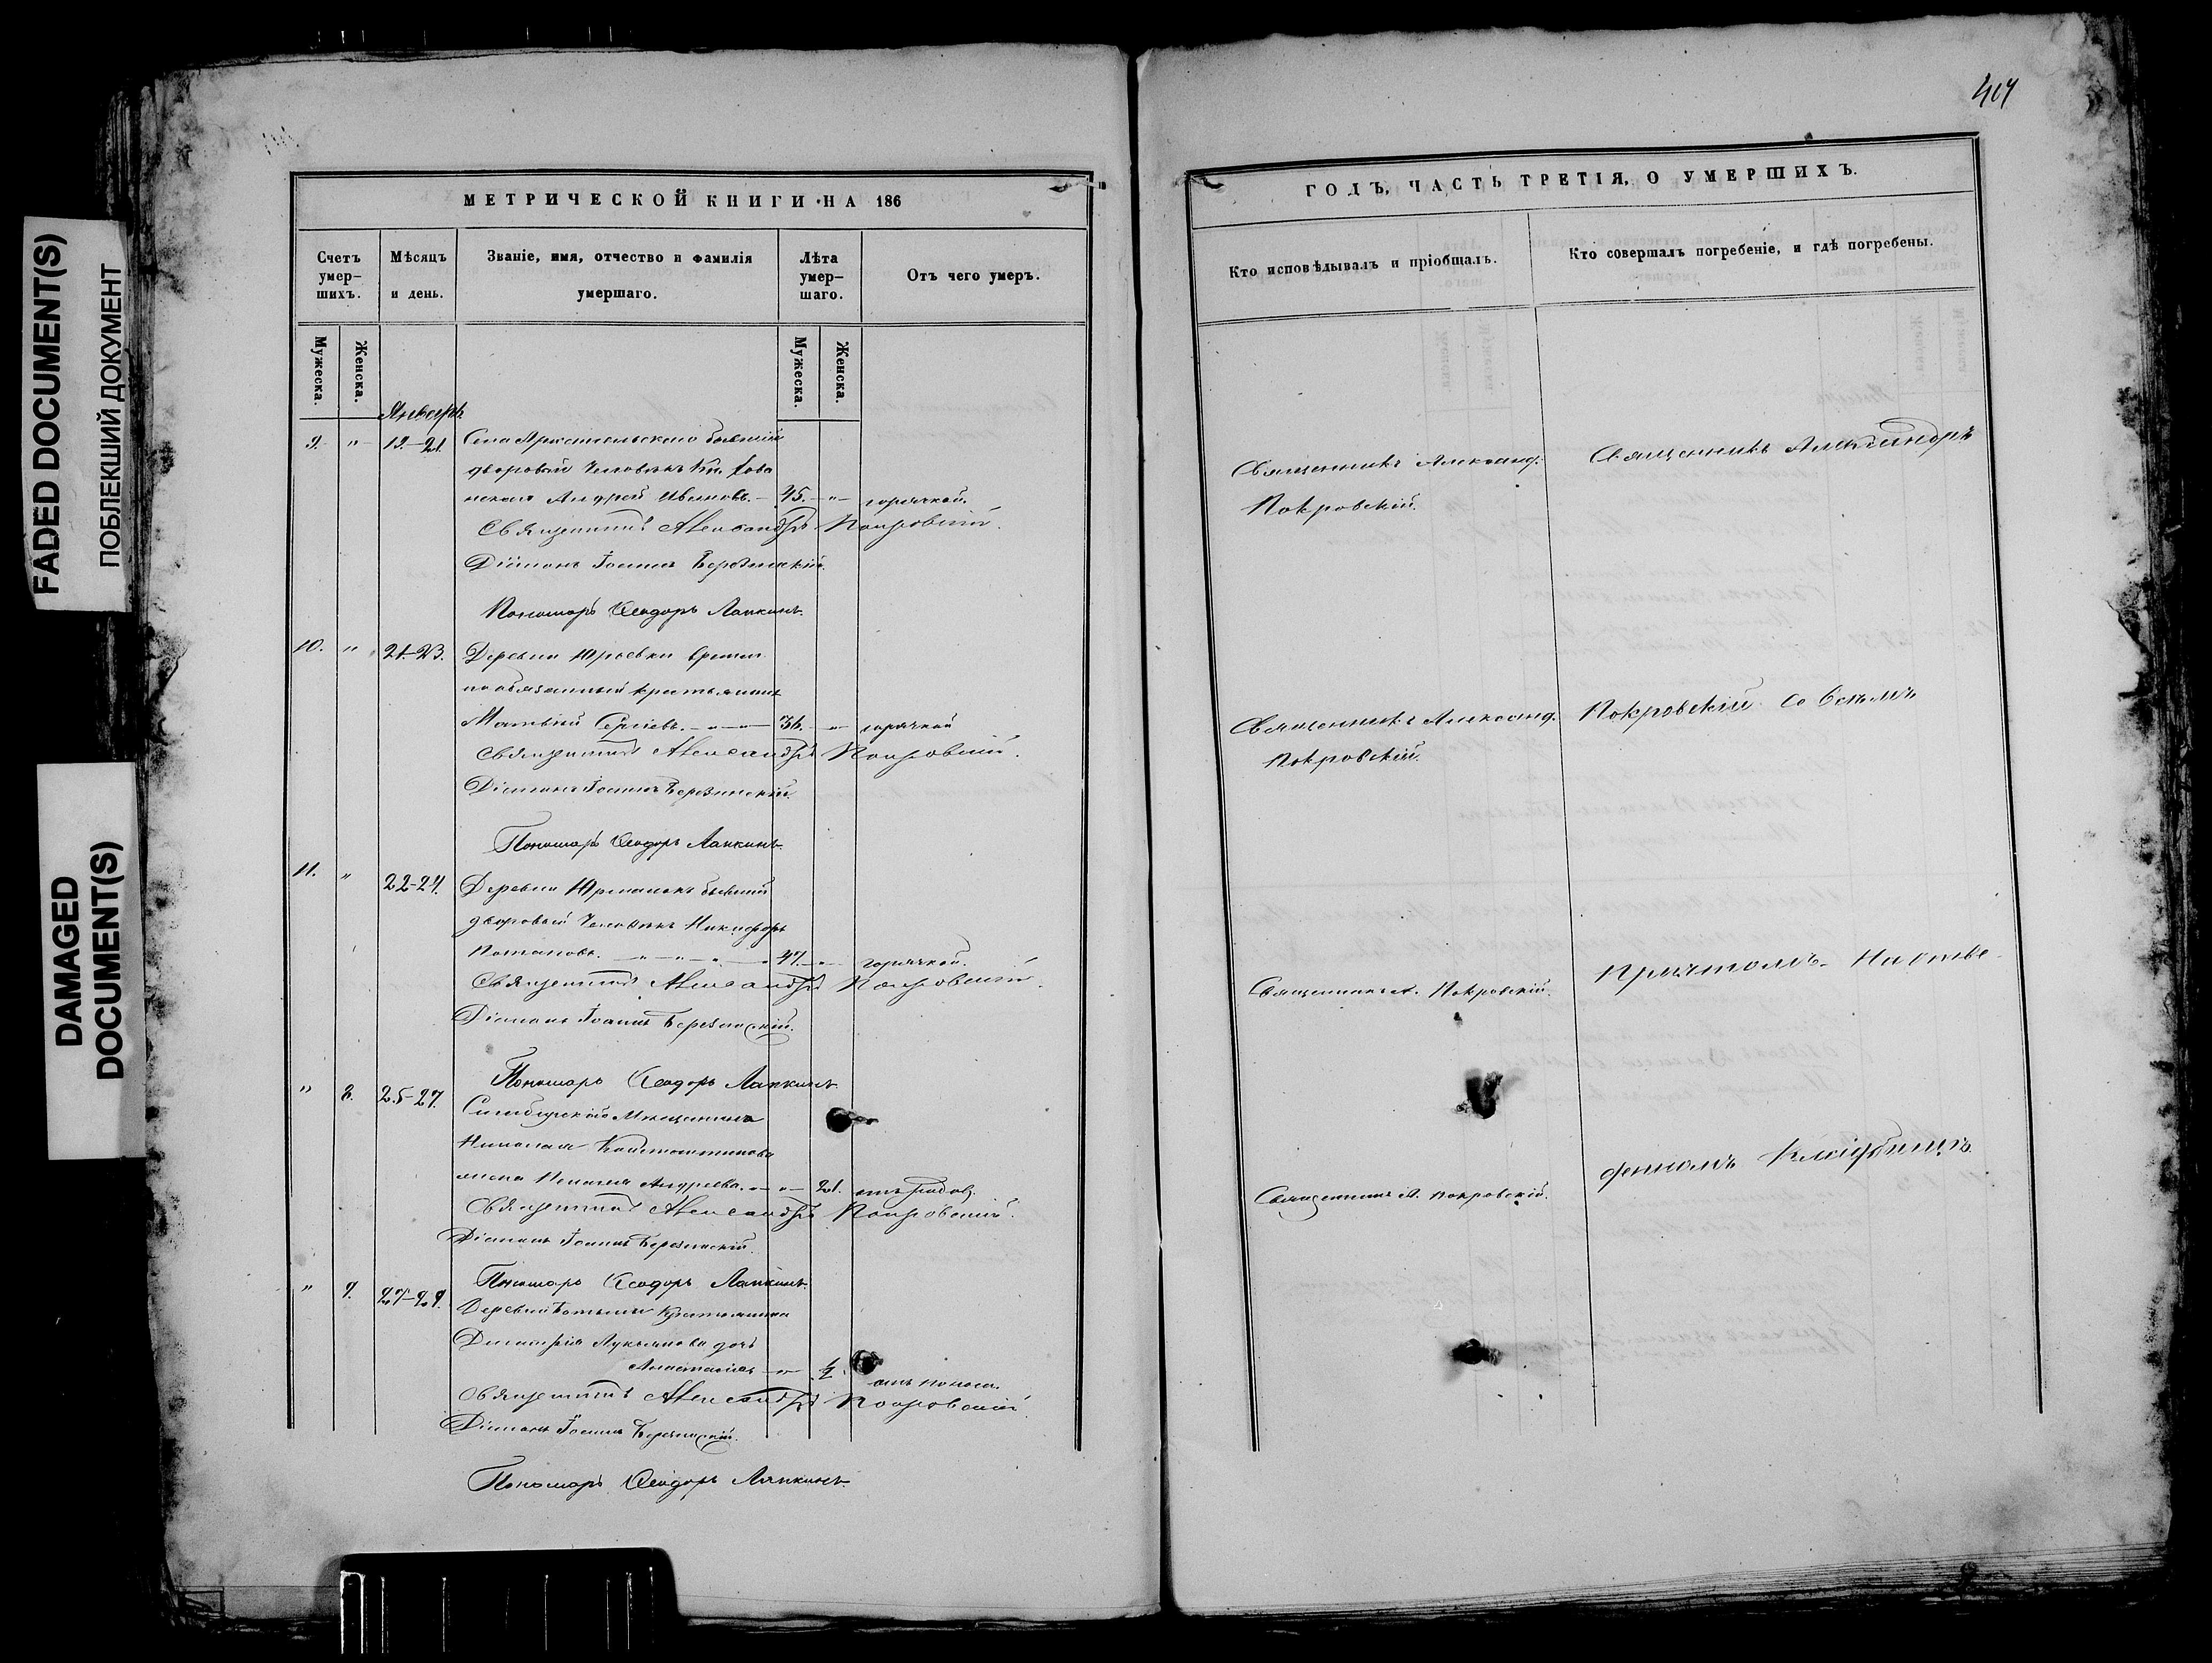 FADED DOCUMENT(S)
ПОБЛЕКШИЙ ДОКУМЕНТ
DAMAGED
DOCUMENT(S)
МЕТРИЧЕСКОЙ КНИГИ НА 186
Счетъ умер- шихъ.
Мѣсяцъ и день.
Званіе, имя, отчество и фамилія умершаго.
Лѣта умер- шаго.
Отъ чего умеръ.
Мужеска.
Женска.
Мужеска.
Женска.
Январь
9. " 19.-21. Села бывшій
дворовый Человѣкъ Кн.
Андрей Ивановъ. 45. " горячкой.
Священникъ Александръ Покровскій.
Діаконъ Іоаннъ Березинскій.
Пономарь Ѳеодоръ Лапкинъ.
10. " 21-23. Деревни Юрьевки времен
но обязанный крестьянинъ
Матвѣй Сергіевъ. 36. " горячкой
Священникъ Александръ Покровскій.
Діаконъ Іоаннъ Березинскій.
Пономарь Ѳеодоръ Лапкинъ.
11. " 22-24. Деревни бывшій
дворовый Человѣкъ Никифоръ
Потаповъ. 47. " горячкой.
Священникъ Александръ Покровскій.
Діаконъ Іоаннъ Березинскій.
Пономарь Ѳеодоръ Лапкинъ.
" 8. 25-27. Симбирскаго Мѣщанина
Николая Константинова
жена Пелагея Андреева. " 21. отъ родов.
Священникъ Александръ Покровскій.
Діаконъ Іоаннъ Березинскій.
Пономарь Ѳеодоръ Лапкинъ.
" 9. 27-29. Деревни Крестьянина
Димитрія Лукьянова дочь
Анастасія 1/2 отъ поноса.
Священникъ Александръ Покровскій.
Діаконъ Іоаннъ Березинскій.
Пономарь Ѳеодоръ Лапкинъ.
ГОДЪ, ЧАСТЬ ТРЕТІЯ, О УМЕРШИХЪ.
Кто исповѣдывалъ и пріобщалъ.
Кто совершалъ погребеніе, и гдѣ погребены.
Священникъ Александ.
Покровскій.
Священникъ Александ.
Покровскій.
Священникъ А. Покровскій.
Священникъ А. Покровскій.
Священникъ Александръ
Покровскій со всѣмъ
Причтомъ. На отве
денномъ кладбищѣ.